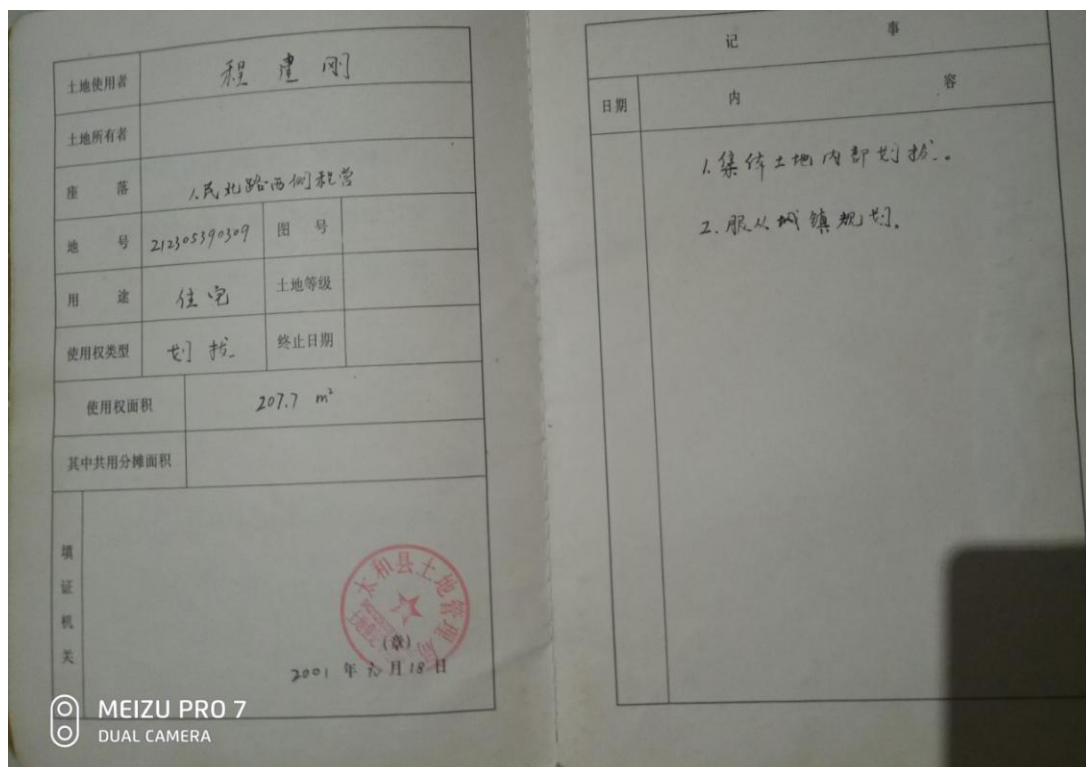 土地使用者 程建刚
土地所有者
座落 人民北路西侧程营
地号 212305390309 图号
用途 住宅 土地等级
使用权类型 划拨 终止日期
使用权面积 207.7 m²
其中共用分摊面积
填证机关
太和县土地管理局
(章)
2001年六月18日
记事
日期 内容
1.集体土地内部划拨。
2.服从城镇规划。
MEIZU PRO 7
DUAL CAMERA